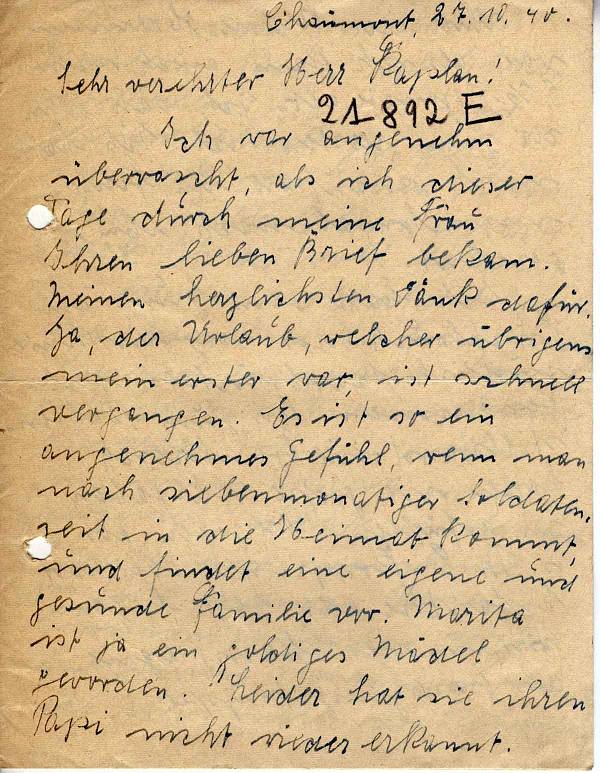 Chaumont, 27.10.40.
Sehr verehrter Herr Kaplan!
21892 E
Ich war angenehm
überrascht, als ich dieser
Tage durch meine Frau
Ihren lieben Brief bekam.
Meinen herzlichsten Dank dafür.
Ja, der Urlaub, welcher übrigens
mein erster war, ist schnell
vergangen. Es ist so ein
angenehmes Gefühl, wenn man
nach siebenmonatiger Soldaten-
zeit in die Heimat kommt,
und findet eine eigene und
gesunde Familie vor. Marita
ist ja ein goldiges Mädel
geworden. Leider hat sie ihren
Papi nicht wieder erkannt.